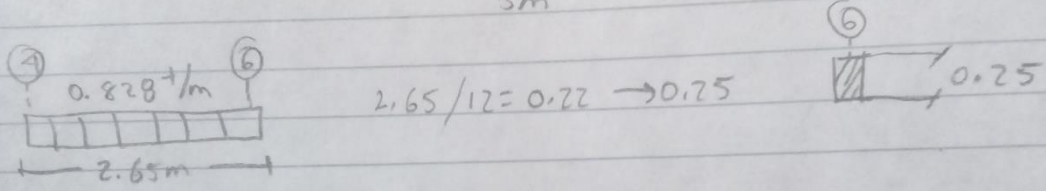 3m
4
6
0.828 t/m
2.65m
2.65/12 = 0.22 → 0.25
6
0.25